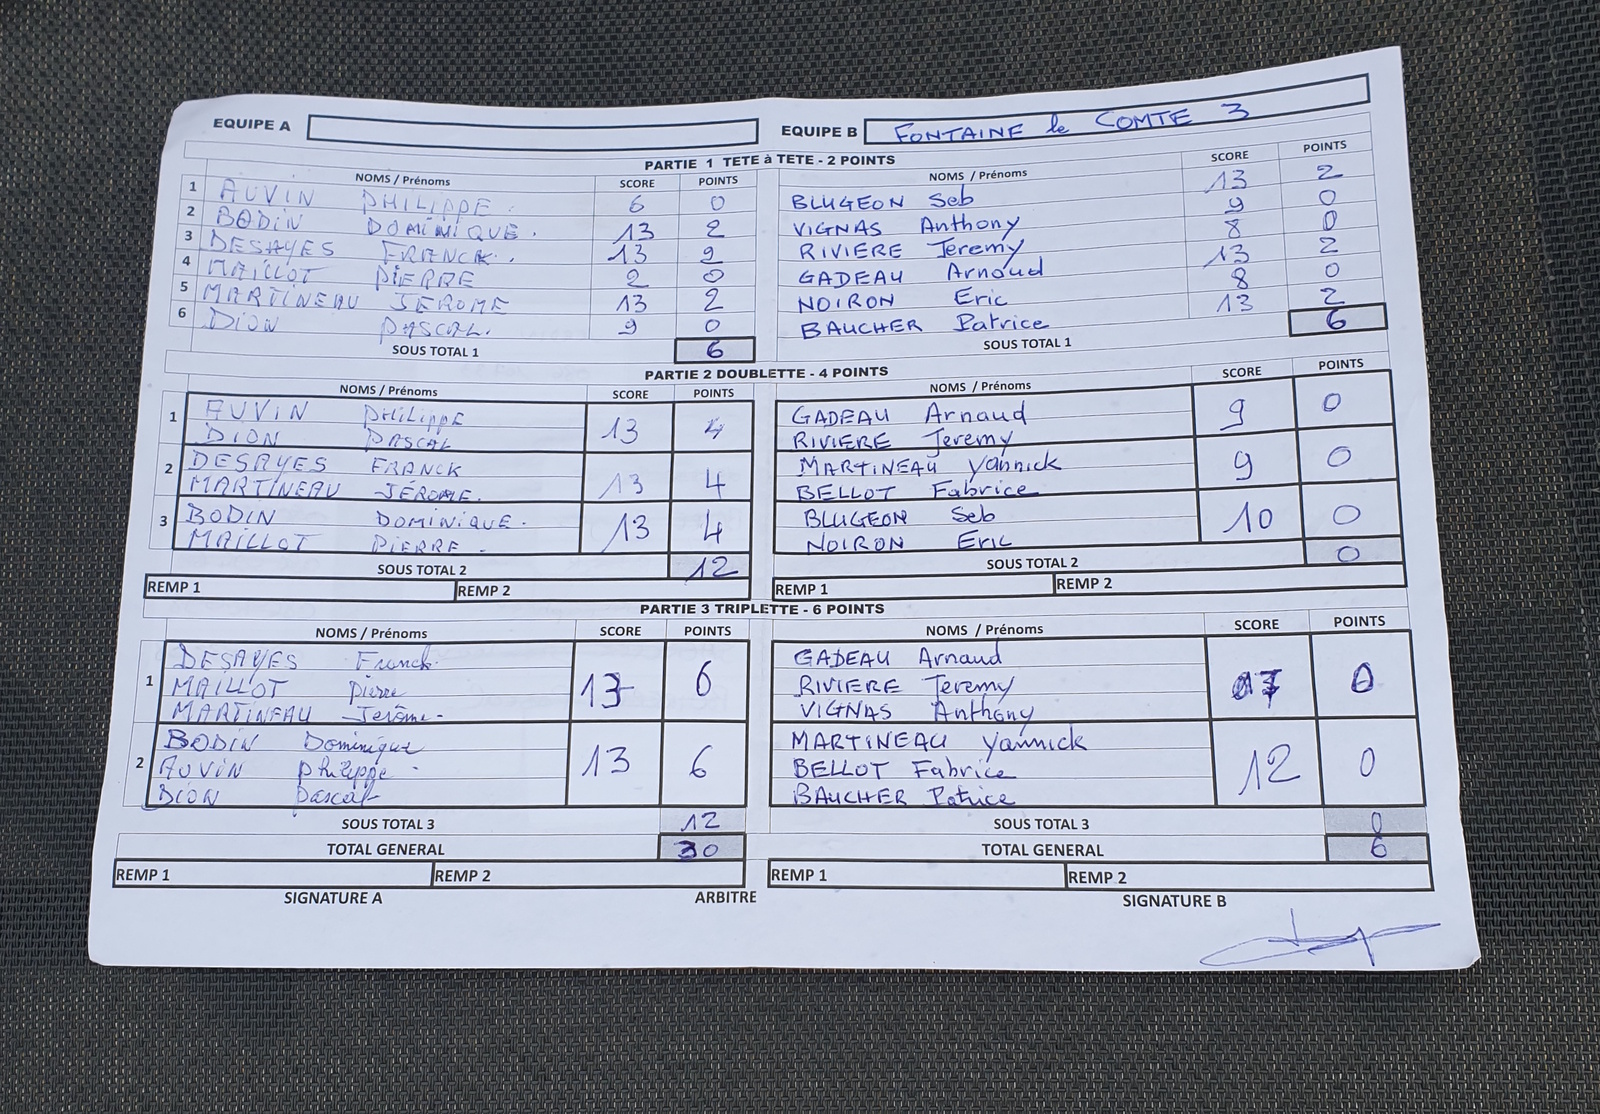 EQUIPE A EQUIPE B FONTAINE le COMTE 3
PARTIE 1 TETE à TETE - 2 POINTS
NOMS / Prénoms SCORE POINTS NOMS / Prénoms SCORE POINTS
1 AUVIN PHILIPPE. 6 0 BLUGEON Seb 13 2
2 BODIN DOMINIQUE. 13 2 VIGNAS Anthony 9 0
3 DESAYES FRANCK. 13 2 RIVIERE Jeremy 8 0
4 MAILLOT PIERRE 2 0 GADEAU Arnaud 13 2
5 MARTINEAU JEROME 13 2 NOIRON Eric 8 0
6 DION PASCAL. 9 0 BAUCHER Patrice 13 2
SOUS TOTAL 1 6 SOUS TOTAL 1 6
PARTIE 2 DOUBLETTE - 4 POINTS
NOMS / Prénoms SCORE POINTS NOMS / Prénoms SCORE POINTS
1 AUVIN PHILIPPE 13 4 GADEAU Arnaud 9 0
DION PASCAL RIVIERE Jeremy
2 DESAYES FRANCK 13 4 MARTINEAU Yannick 9 0
MARTINEAU JÉROME. BELLOT Fabrice
3 BODIN DOMINIQUE. 13 4 BLUGEON Seb 10 0
MAILLOT PIERRE. NOIRON Eric
SOUS TOTAL 2 12 SOUS TOTAL 2 0
REMP 1 REMP 2 REMP 1 REMP 2
PARTIE 3 TRIPLETTE - 6 POINTS
NOMS / Prénoms SCORE POINTS NOMS / Prénoms SCORE POINTS
1 DESAYES Franck. 13 6 GADEAU Arnaud 0
MAILLOT pierre RIVIERE Jeremy
MARTINEAU Jerôme. VIGNAS Anthony
2 BODIN Dominique 13 6 MARTINEAU Yannick 12 0
AUVIN philippe. BELLOT Fabrice
DION pascal BAUCHER Patrice
SOUS TOTAL 3 12 SOUS TOTAL 3 0
TOTAL GENERAL 30 TOTAL GENERAL 6
REMP 1 REMP 2 REMP 1 REMP 2
SIGNATURE A ARBITRE SIGNATURE B